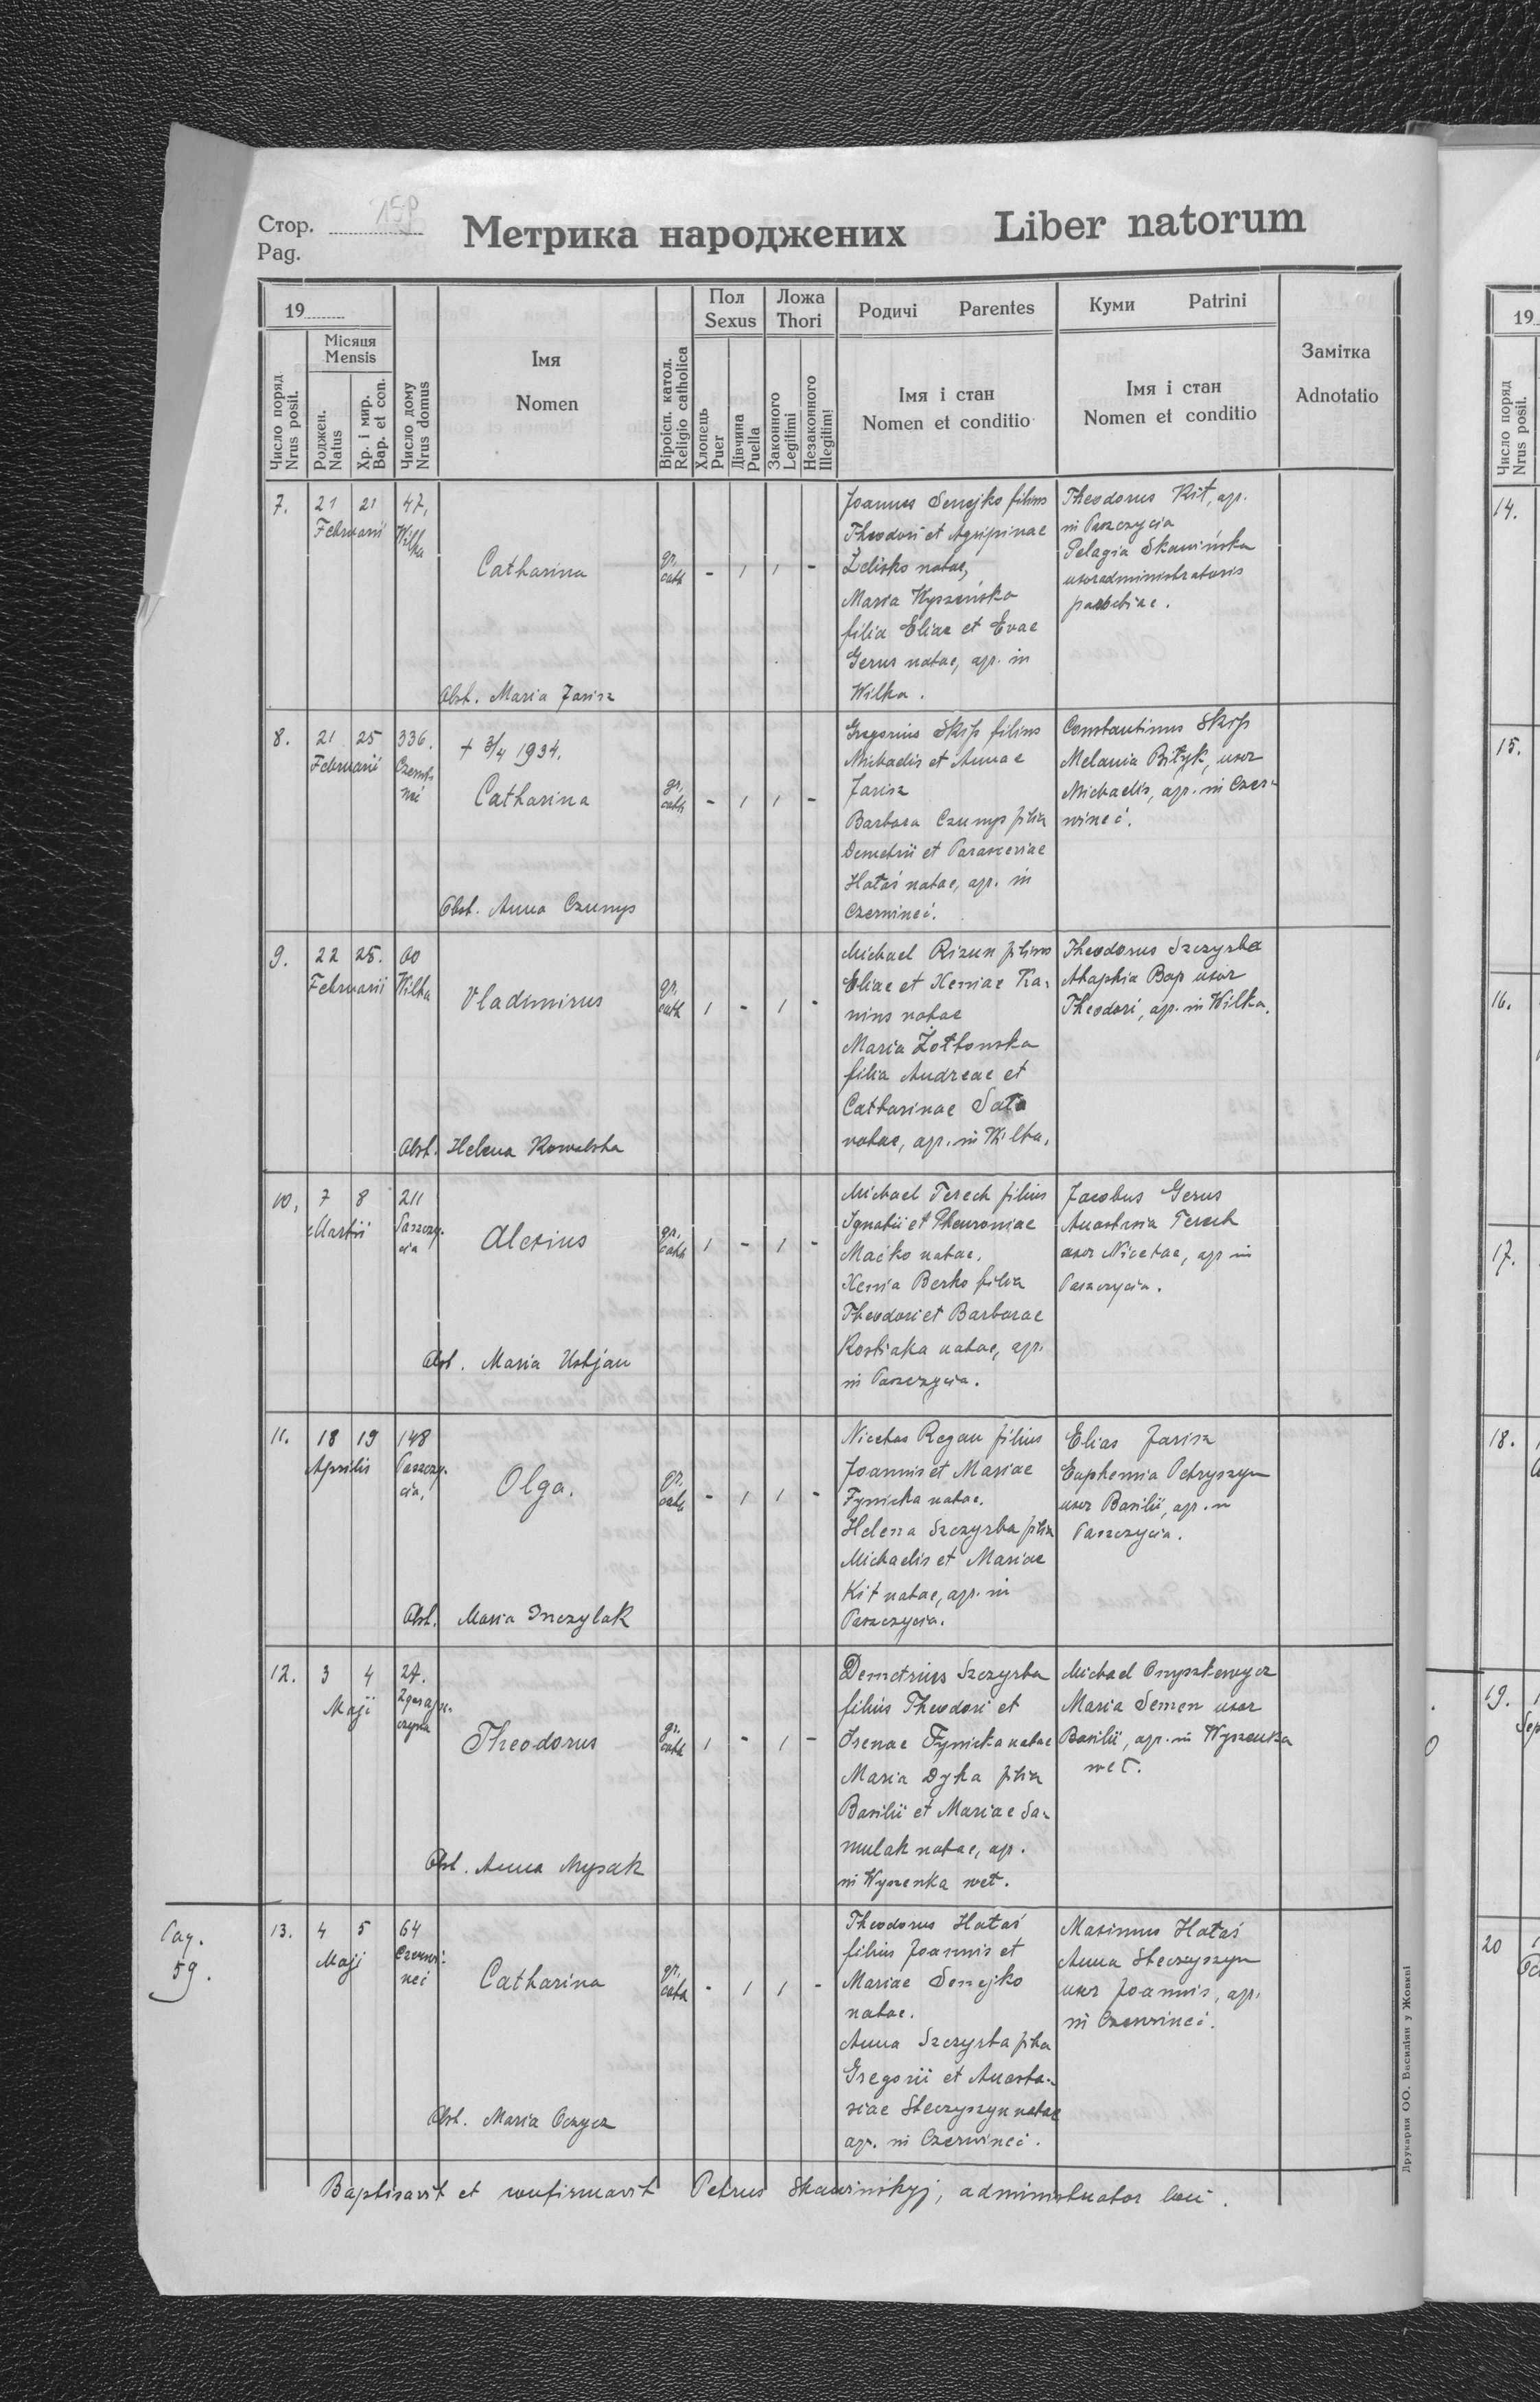 Стор. 159
Pag.
Метрика народжених Liber natorum
19
Місяця
Mensis
Число поряд
Nrus posit.
Роджен.
Natus
Хр. і мир.
Bap. et con.
Число дому
Nrus domus
Імя
Nomen
Віроісп. катол.
Religio catholica
Пол
Sexus
Хлопець
Puer
Дівчина
Puella
Ложа
Thori
Законного
Legitimi
Незаконного
Illegitimi
Родичі Parentes
Імя і стан
Nomen et conditio
Куми Patrini
Імя і стан
Nomen et conditio
Замітка
Adnotatio
7. 21 21 47,
Februarii Wilka
Catharina
gr. cath - 1 1 -
Obst. Maria Jarisz
Joannes Senejko filius
Theodori et Agripinae
Żelisko natae,
Maria Wyszeńska
filia Eliae et Evae
Gerus natae, agr. in
Wilka.
Theodorus Kit, agr.
in Paszczycia
Pelagia Skawińska
uxor administratoris
parochiae.
8. 21 25 336.
Februarii Czerwinci
+ 3/4 1934.
Catharina
gr. cath - 1 1 -
Obst. Anna Czumys
Gregorius Skip filius
Michaelis et Annae
Jarisz
Barbara Czumys filia
Demetrii et Parasceviae
Hałaś natae, agr. in
Czerwinci.
Constantinus Skip
Melania Bityk, uxor
Michaelis, agr. in Czer-
winci.
9. 22 25. 60
Februarii Wilka
Vladimirus
gr. cath 1 - 1 -
Obst. Helena Kowalska
Michael Rizun filius
Eliae et Xeniae Ka-
nins natae
Maria Żołtowska
filia Andreae et
Catharinae Sała
natae, agr. in Wilka.
Theodorus Szczyrba
Ahaphia Bap uxor
Theodori, agr. in Wilka.
10. 7 8 211
Martii Paszczycia
Alexius
gr. cath 1 - 1 -
Obst. Maria Ustjan
Michael Terech filius
Ignatii et Pheuroniae
Maćko natae.
Xenia Berko filia
Theodori et Barbarae
Kostiaka natae, agr.
in Paszczycia.
Jacobus Gerus
Anastasia Terech
uxor Nicetae, agr in
Paszczycia.
11. 18 19 148
Aprilis Paszczycia,
Olga.
gr. cath - 1 1 -
Obst. Maria Inczylak
Nicetas Regan filius
Joannis et Mariae
Fynicka natae.
Helena Szczyrba filia
Michaelis et Mariae
Kit natae, agr. in
Paszczycia.
Elias Jarisz
Euphemia Petryszyn
uxor Basilii, agr. in
Paszczycia.
12. 3 4 27.
Maji
Theodorus
gr. cath 1 - 1 -
Obst. Anna Mysak
Demetrius Szczyrba
filius Theodori et
Irenae Fynicka natae
Maria Dyka filia
Basilii et Mariae Sa-
mulak natae, agr.
in Wyszenka wet.
Michael Onyszkewycz
Maria Semen uxor
Basilii, agr. in Wyszenka
wet.
Pag.
59.
13. 4 5 64
Maji Czerwinci
Catharina
gr. cath - 1 1 -
Obst. Maria Oczycz
Theodorus Hałaś
filius Joannis et
Mariae Senejko
natae.
Anna Szczyrba filia
Gregorii et Anasta-
siae Steczyszyn natae
agr. in Czerwinci.
Maximus Hałaś
Anna Steczyszyn
uxor Joannis, agr.
in Czerwinci.
Baptisavit et confirmavit Petrus Skawinśkyj, administrator loci.
Друкарня ОО. Василіян у Жовкві
19
Число поряд
Nrus posit.
14.
15.
16.
17.
18.
19.
20